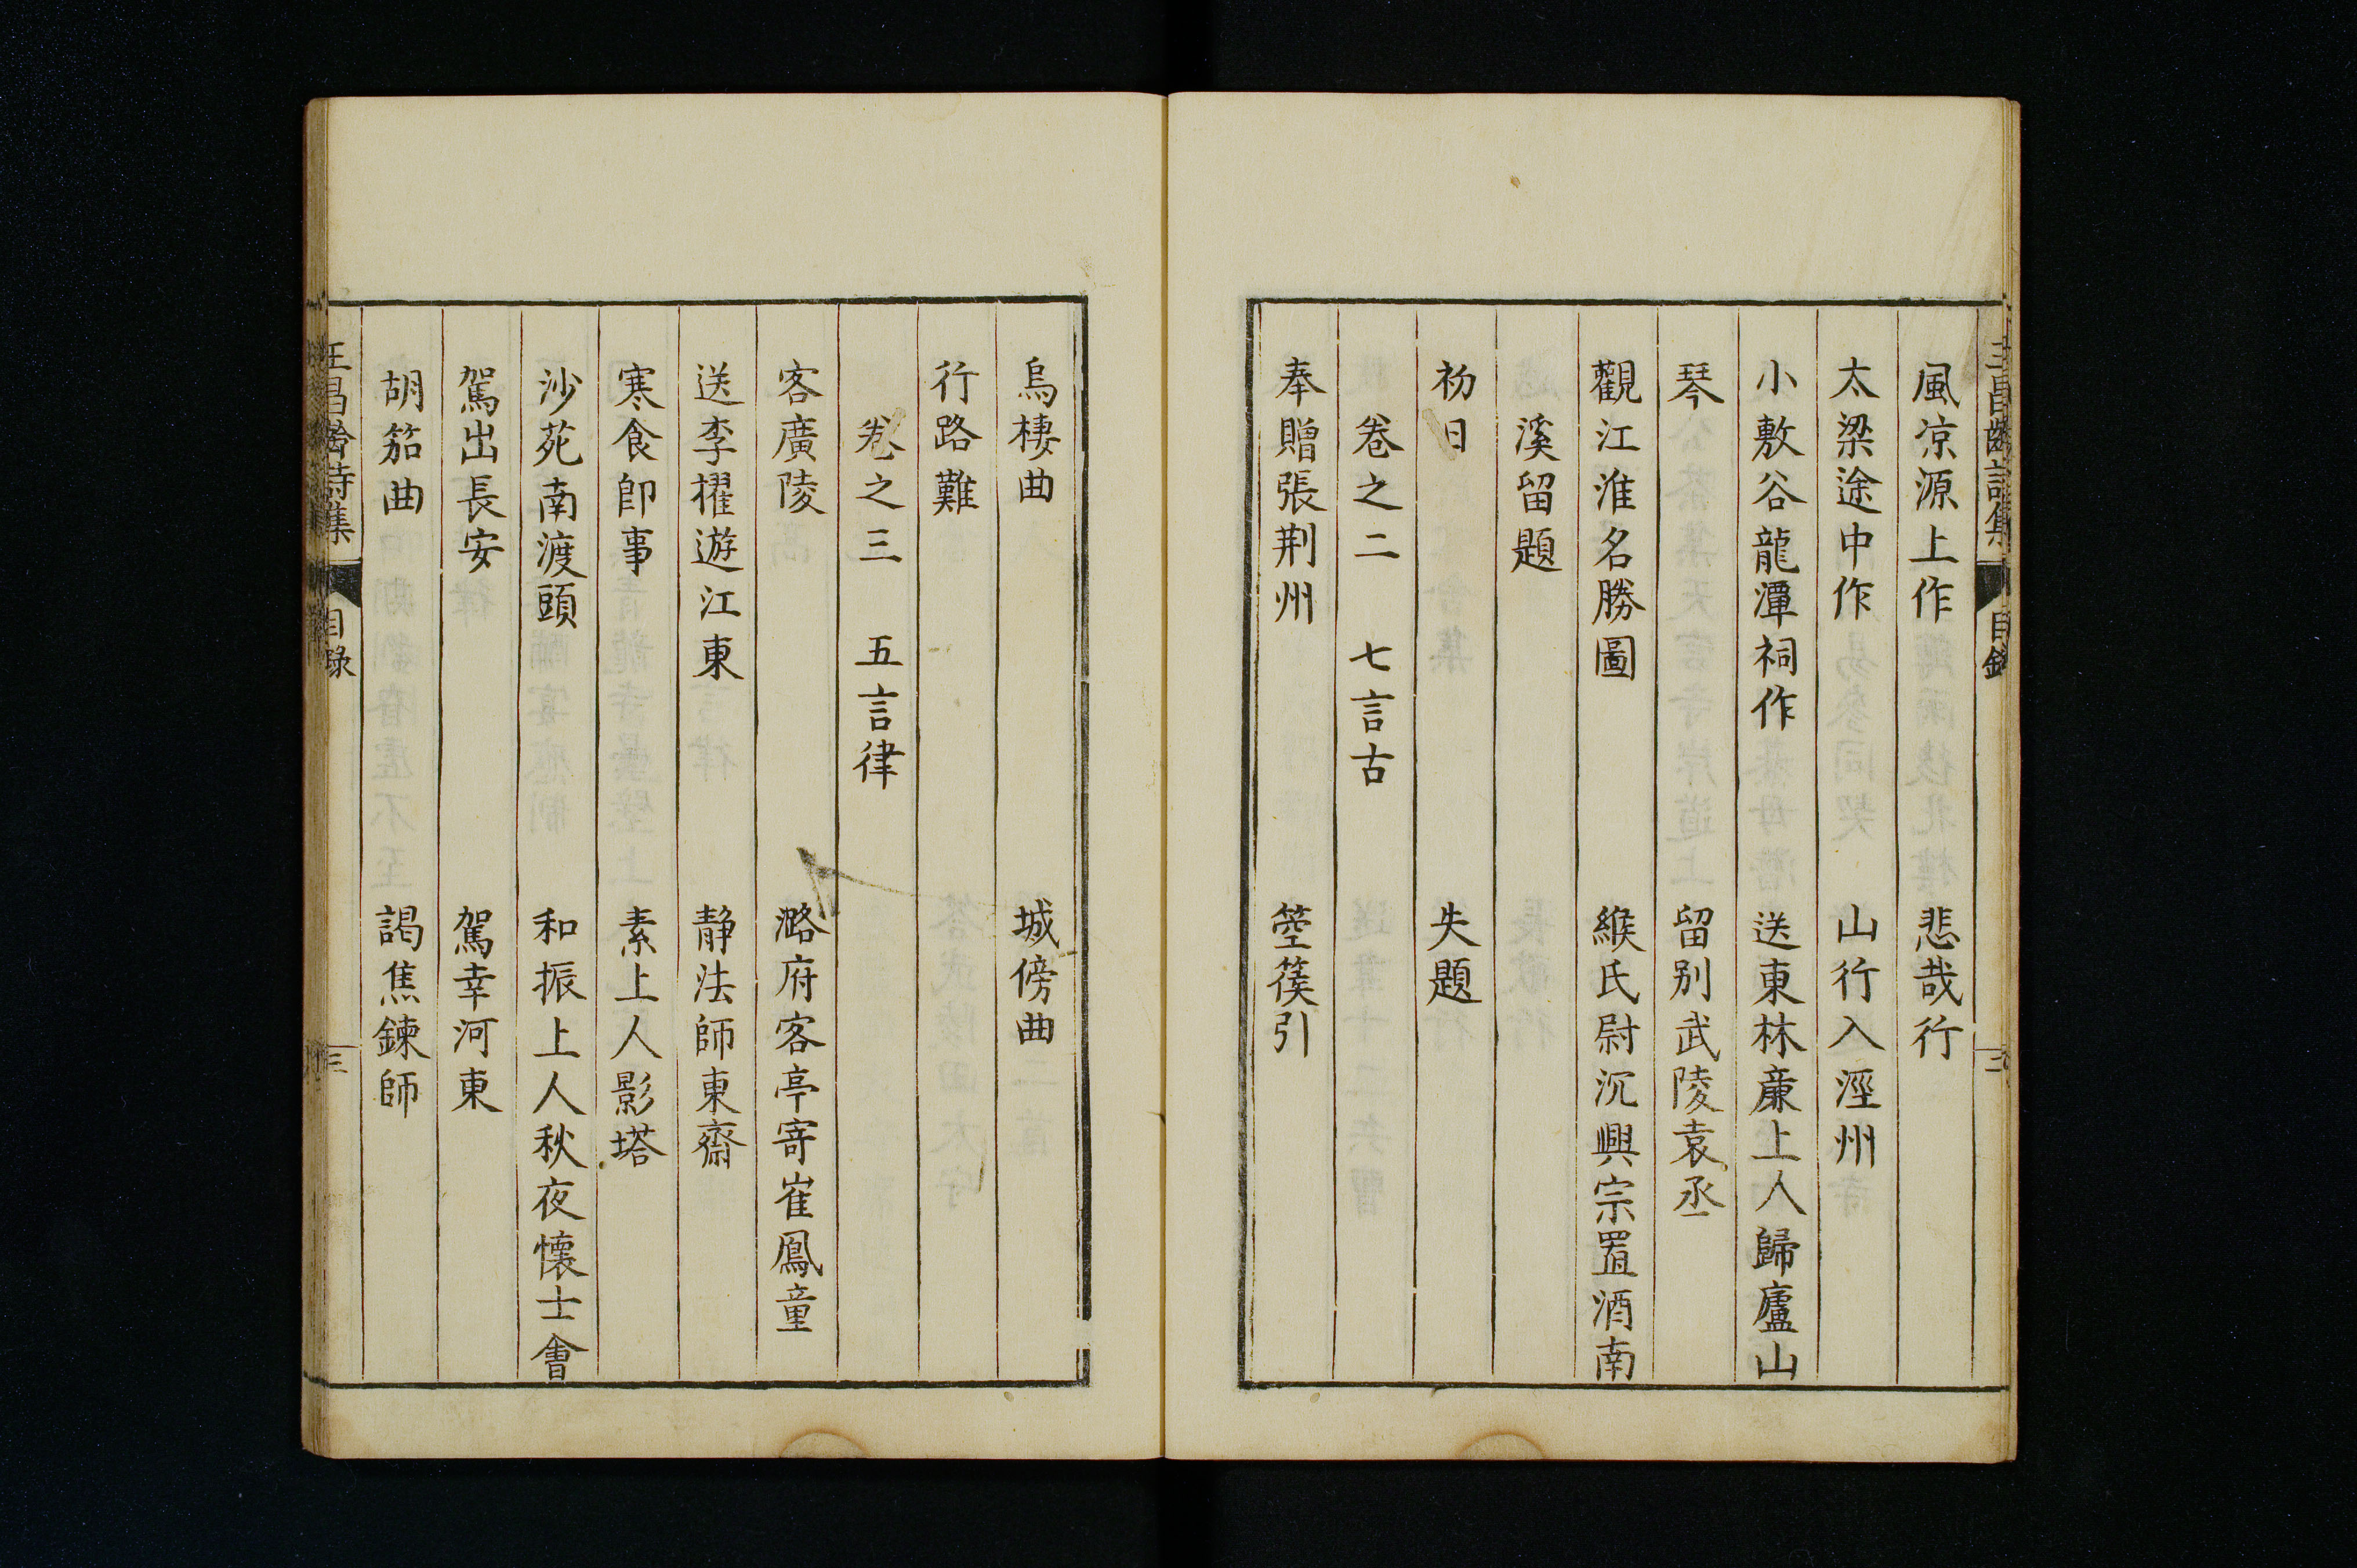 王昌齡詩集 目錄 二
風凉源上作 悲哉行
太梁途中作 山行入涇州
小敷谷龍潭祠作 送東林廉上人歸廬山
琴 留别武陵袁丞
觀江淮名勝圖 緱氏尉沉興宗置酒南
溪留題
初日 失題
卷之二 七言古
奉贈張荆州 箜篌引
烏棲曲 城傍曲
行路難
卷之三 五言律
客廣陵 潞府客亭寄崔鳳童
送李擢遊江東 静法師東齋
寒食卽事 素上人影塔
沙苑南渡頭 和振上人秋夜懷士會
駕出長安 駕幸河東
胡笳曲 謁焦鍊師
王昌齡詩集 目錄 三